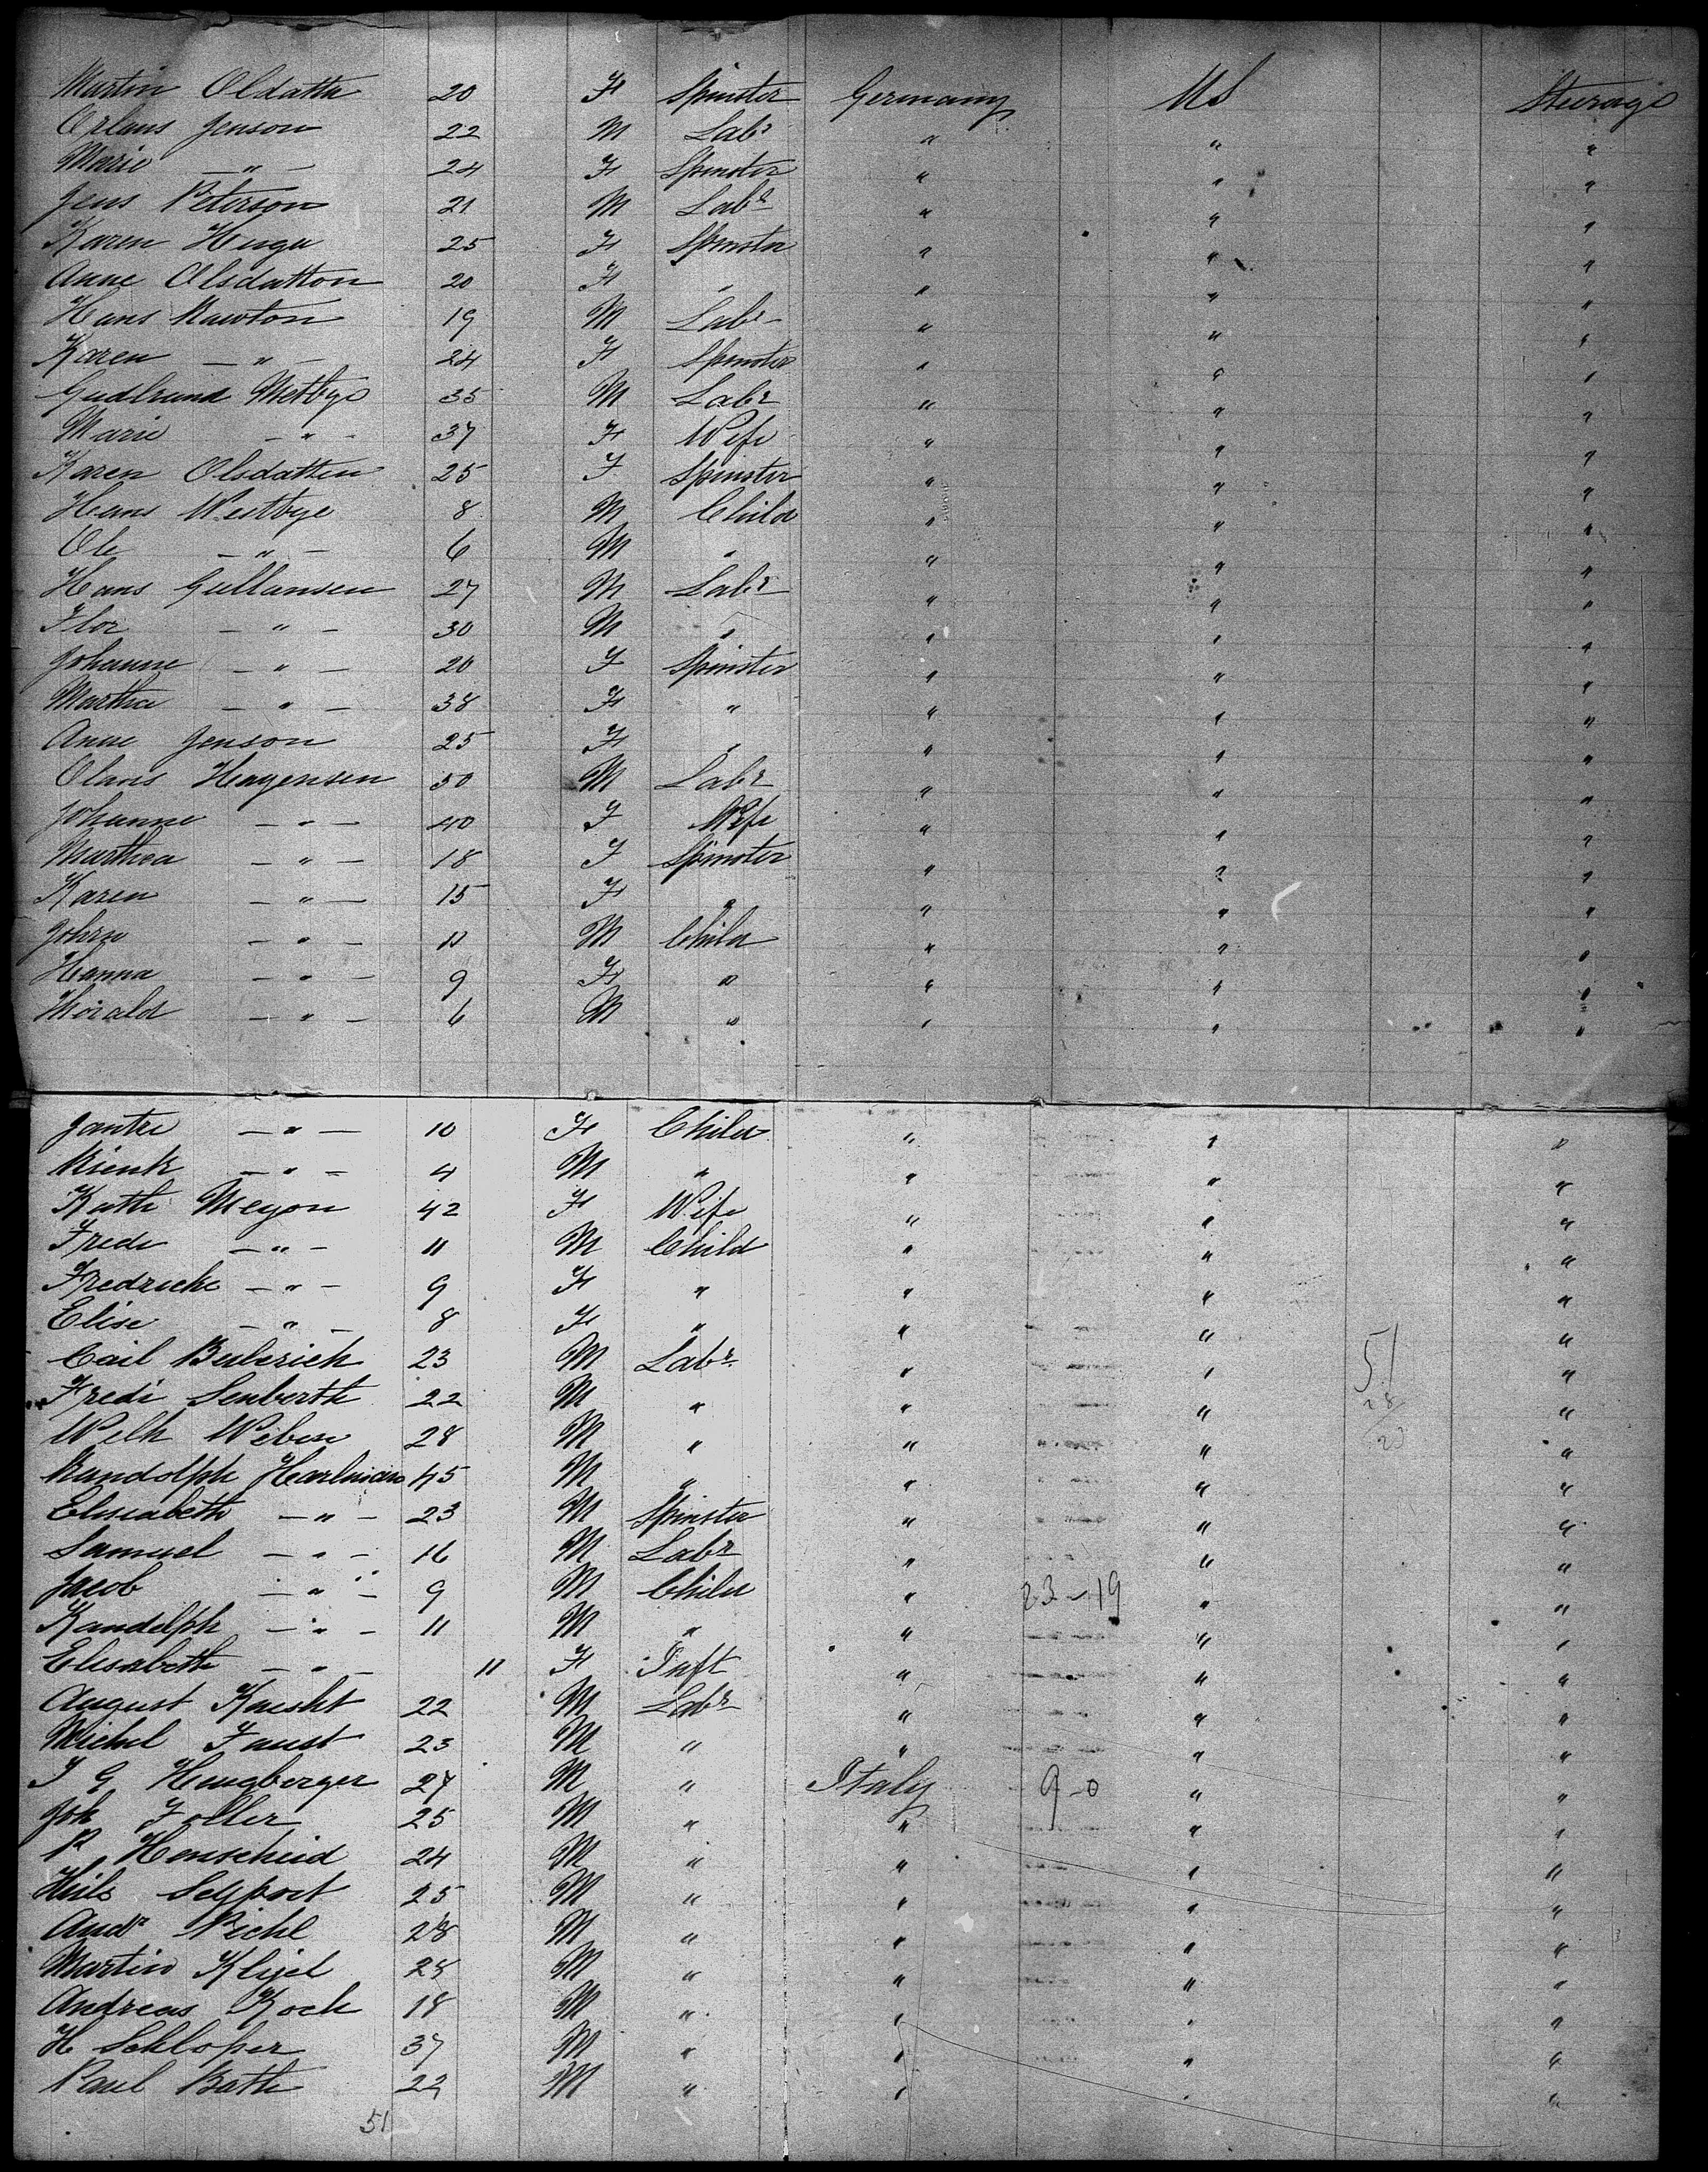 Martin Oldatta 20 F Spinster Germany US Steerage
Orlans Jenson 22 M Labr " " "
Marie — " — 24 F Spinster " " "
Jens Peterson 21 M Labr " " "
Karen Huge 25 F Spinster " " "
Anne Olsdatton 20 F " " " "
Hans Nawton 19 M Labr " " "
Karen — " — 24 F Spinster " " "
Gudbrand Metbye 35 M Labr " " "
Marie — " — 37 F Wife " " "
Karen Olsdatten 25 F Spinster " " "
Hans Westbye 8 M Child " " "
Ole — " — 6 M " " " "
Hans Gullansen 27 M Labr " " "
Flor — " — 30 M " " " "
Johanne — " — 20 F Spinster " " "
Martha — " — 38 F " " " "
Anne Jenson 25 F " " " "
Olans Hagensen 50 M Labr " " "
Johanne — " — 40 F Wife " " "
Marthea — " — 18 F Spinster " " "
Karen — " — 15 F " " " "
Johrn — " — M Child " " "
Hanna — " — 9 F " " " "
Horald — " — 6 M " " " "
Jantre — " — 10 F Child " " "
Rienk — " — 4 M " " " "
Kath Meyon 42 F Wife " " "
Fredr — " — 11 M Child " " "
Fredricke — " — 9 F " " " "
Elise — " — 8 F " " " "
Carl Berberich 23 M Labr " " 51 "
Fredr Senberth 22 M " " " 28 "
Welh Weber 28 M " " " 23 "
Randolph Harlman 45 M " " " "
Elisiabeth — " — 23 M Spinster " " "
Samuel — " — 16 M Labr " " "
Jacob — " — 9 M Child " 23-19 " "
Randolph — " — 11 M " " " "
Elisabeth — " — 11 F Inft " " "
August Knesht 22 M Labr " " "
Michel Faust 23 M " " " "
J G Hengberger 27 M " Italy 9-0 " "
Joh Foller 25 M " " " "
P Henscheid 24 M " " " "
Hils Seypoct 25 M " " " "
Andr Piehl 28 M " " " "
Martin Kligel 24 M " " " "
Andreas Koch 18 M " " " "
H Schloper 37 M " " " "
Paul Bath 22 M " " " "
51